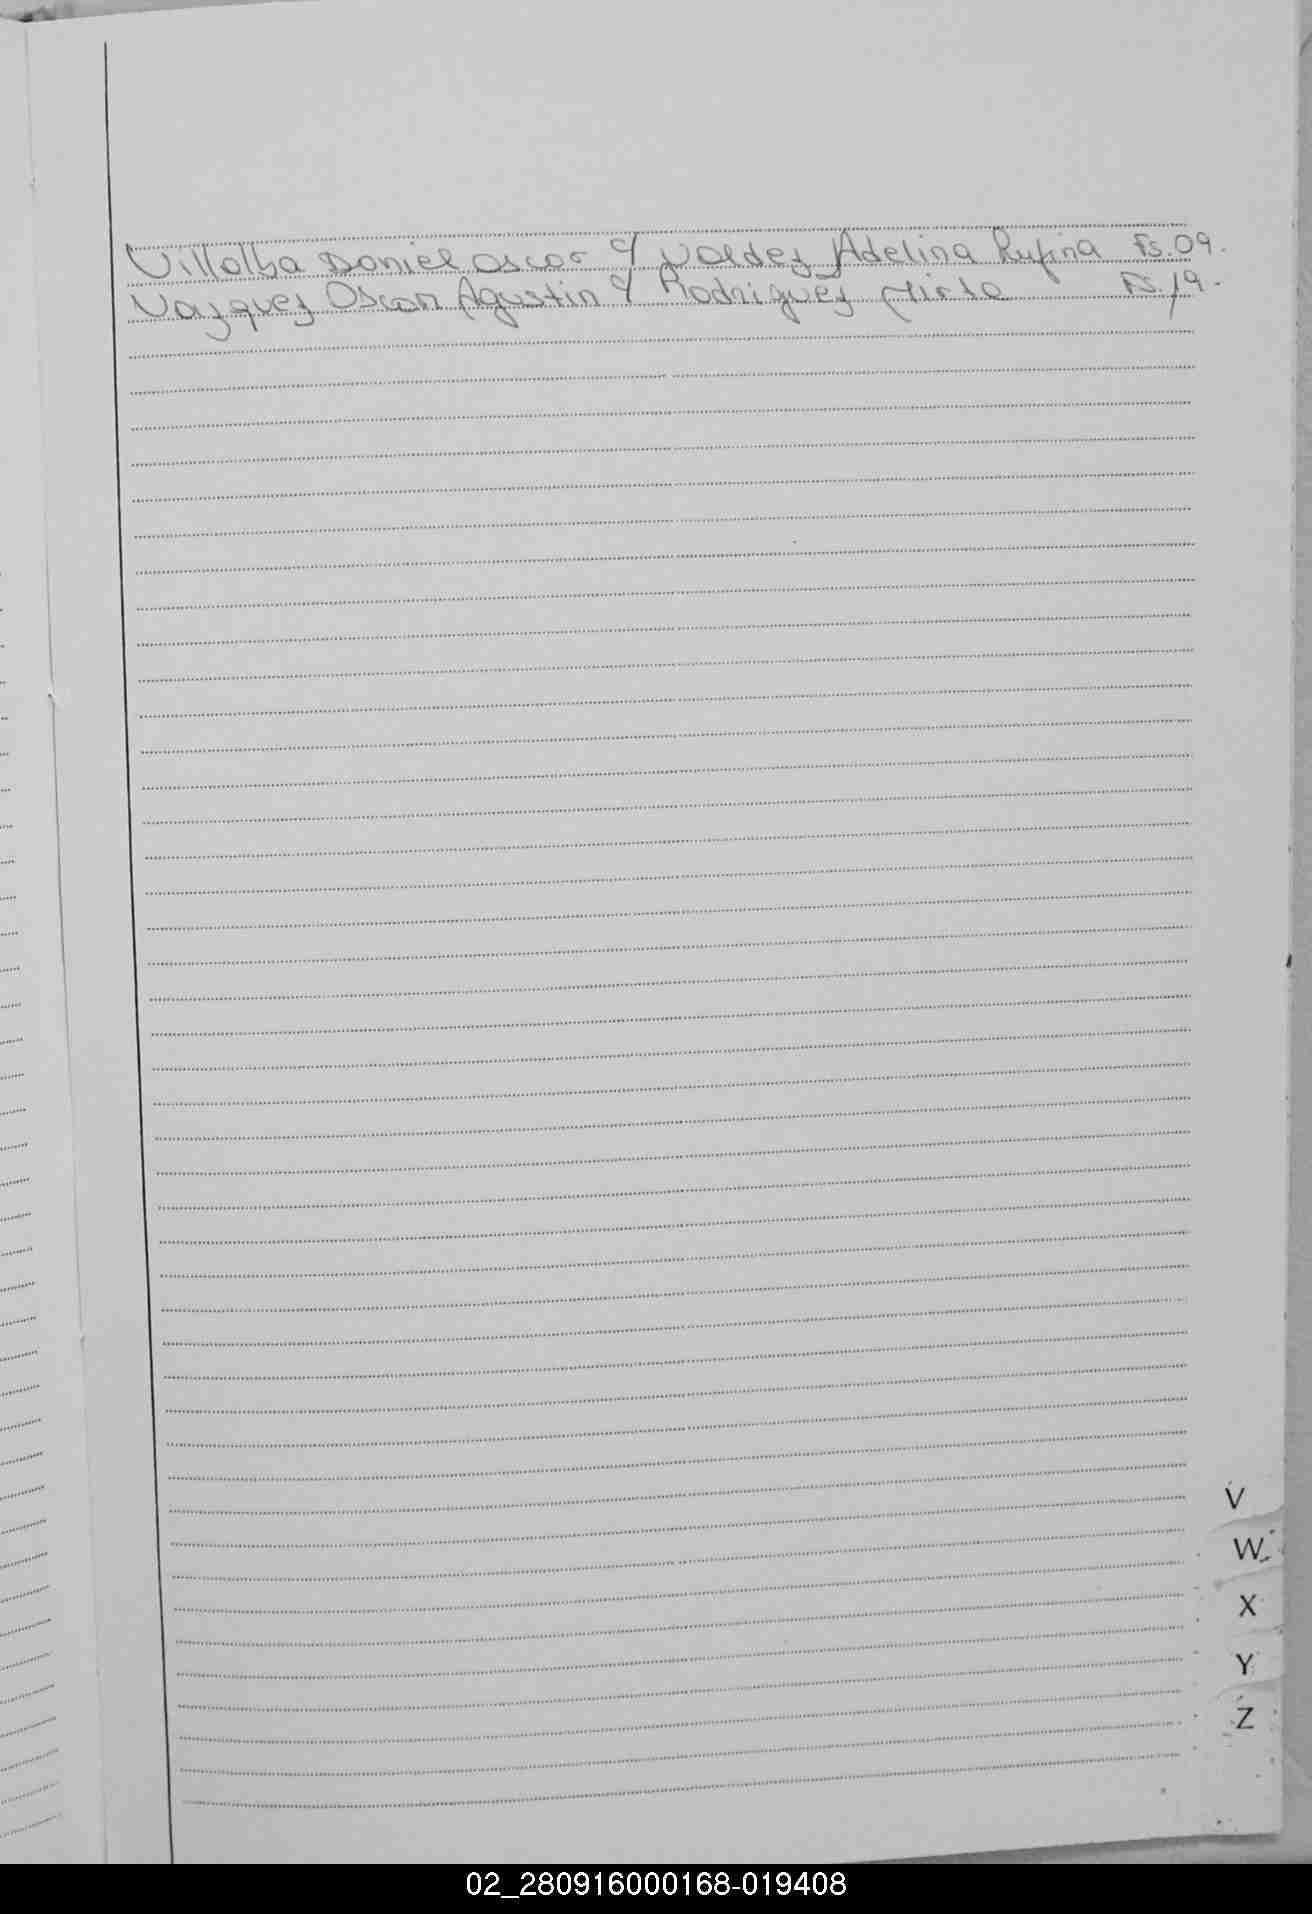 Villalba Daniel Oscar c/ Valdez Adelina Rufina Fs. 09.
Vazquez Oscar Agustin c/ Rodriguez Mirta Fs. 19.
V
W
X
Y
Z
02_280916000168-019408